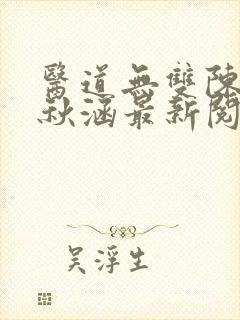 醫道無雙陳
秋涵最新閱
吴浮生